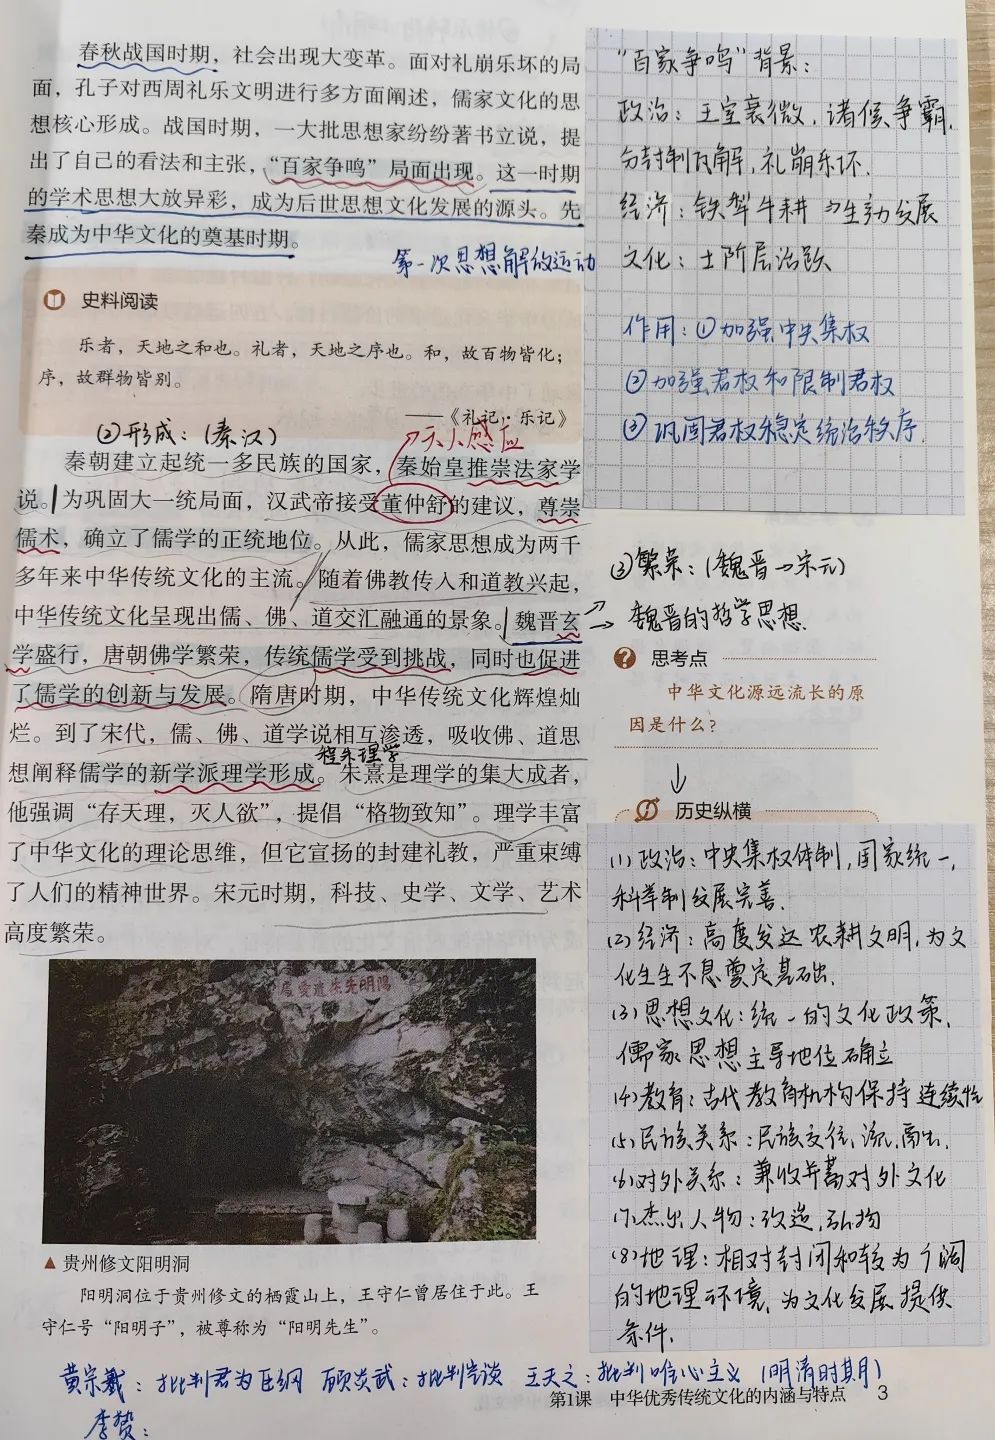 春秋战国时期，社会出现大变革。面对礼崩乐坏的局
面，孔子对西周礼乐文明进行多方面阐述，儒家文化的思
想核心形成。战国时期，一大批思想家纷纷著书立说，提
出了自己的看法和主张，“百家争鸣”局面出现。这一时期
的学术思想大放异彩，成为后世思想文化发展的源头。先
秦成为中华文化的奠基时期。
第一次思想解放运动
史料阅读
乐者，天地之和也。礼者，天地之序也。和，故百物皆化；
序，故群物皆别。
——《礼记·乐记》
②形成：（秦汉）
天人感应
秦朝建立起统一多民族的国家，秦始皇推崇法家学
说。为巩固大一统局面，汉武帝接受董仲舒的建议，尊崇
儒术，确立了儒学的正统地位。从此，儒家思想成为两千
多年来中华传统文化的主流。随着佛教传入和道教兴起，
中华传统文化呈现出儒、佛、道交汇融通的景象。魏晋玄
学盛行，唐朝佛学繁荣，传统儒学受到挑战，同时也促进
了儒学的创新与发展。隋唐时期，中华传统文化辉煌灿
烂。到了宋代，儒、佛、道学说相互渗透，吸收佛、道思
程朱理学
想阐释儒学的新学派理学形成。朱熹是理学的集大成者，
他强调“存天理，灭人欲”，提倡“格物致知”。理学丰富
了中华文化的理论思维，但它宣扬的封建礼教，严重束缚
了人们的精神世界。宋元时期，科技、史学、文学、艺术
高度繁荣。
“百家争鸣”背景：
政治：王室衰微，诸侯争霸，
分封制瓦解，礼崩乐坏．
经济：铁犁牛耕 生产力发展
文化：士阶层活跃
作用：①加强中央集权
②加强君权和限制君权
③巩固君权稳定统治秩序．
③繁荣：（魏晋→宋元）
→魏晋的哲学思想．
思考点
中华文化源远流长的原
因是什么？
历史纵横
(1)政治：中央集权体制，国家统一，
科举制发展完善．
(2)经济：高度发达农耕文明，为文
化生生不息奠定基础．
(3)思想文化：统一的文化政策，
儒家思想主导地位确立
(4)教育：古代教育机构保持连续性
(5)民族关系：民族交往、
(6)对外关系：兼收并蓄对外文化
(7)杰出人物：改造，
(8)地理：相对封闭和较为
的地理环境，为文化发展提供
条件．
阳明先生遗爱处
▲贵州修文阳明洞
阳明洞位于贵州修文的栖霞山上，王守仁曾居住于此。王
守仁号“阳明子”，被尊称为“阳明先生”。
黄宗羲：批判君为臣纲 顾炎武：批判 王夫之：批判唯心主义（明清时期）
李贽：
第1课 中华优秀传统文化的内涵与特点 3